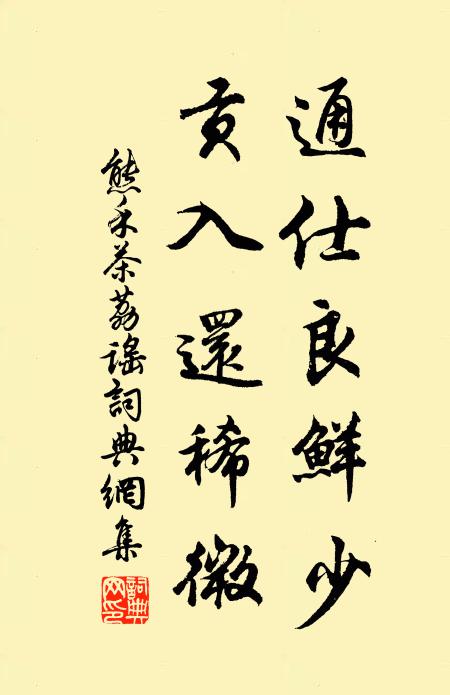 通仕良鮮少
貢入還稀微
熊禾荼荔謠詞典網集
詞典網印